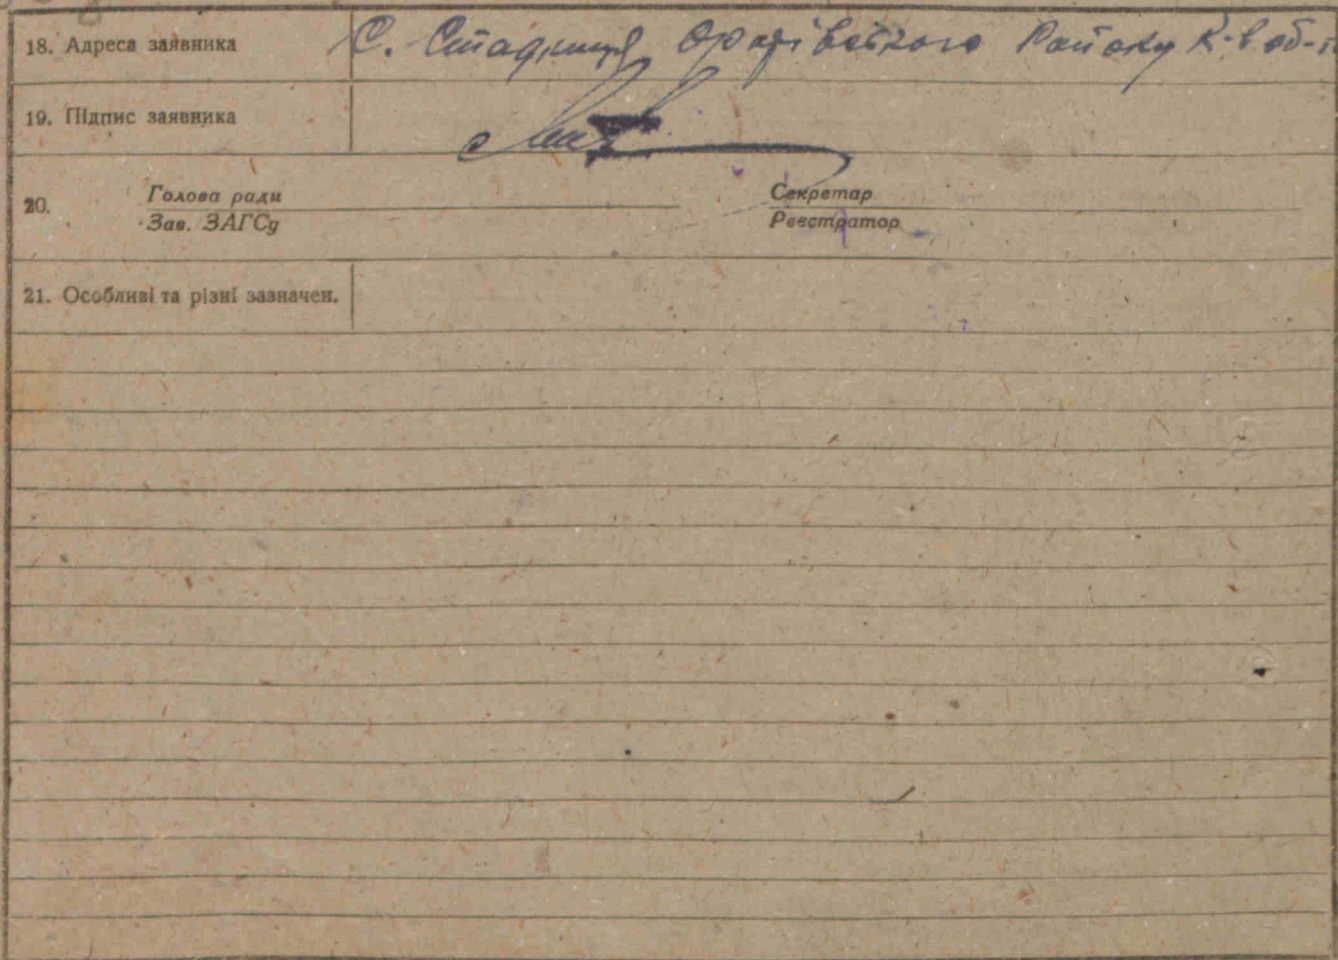 18. Адреса заявника С. Стадниця Оратівського Району К-в об-і
19. Підпис заявника
20. Голова ради Секретар
Зав. ЗАГСу Реєстратор
21. Особливі та різні зазначен.